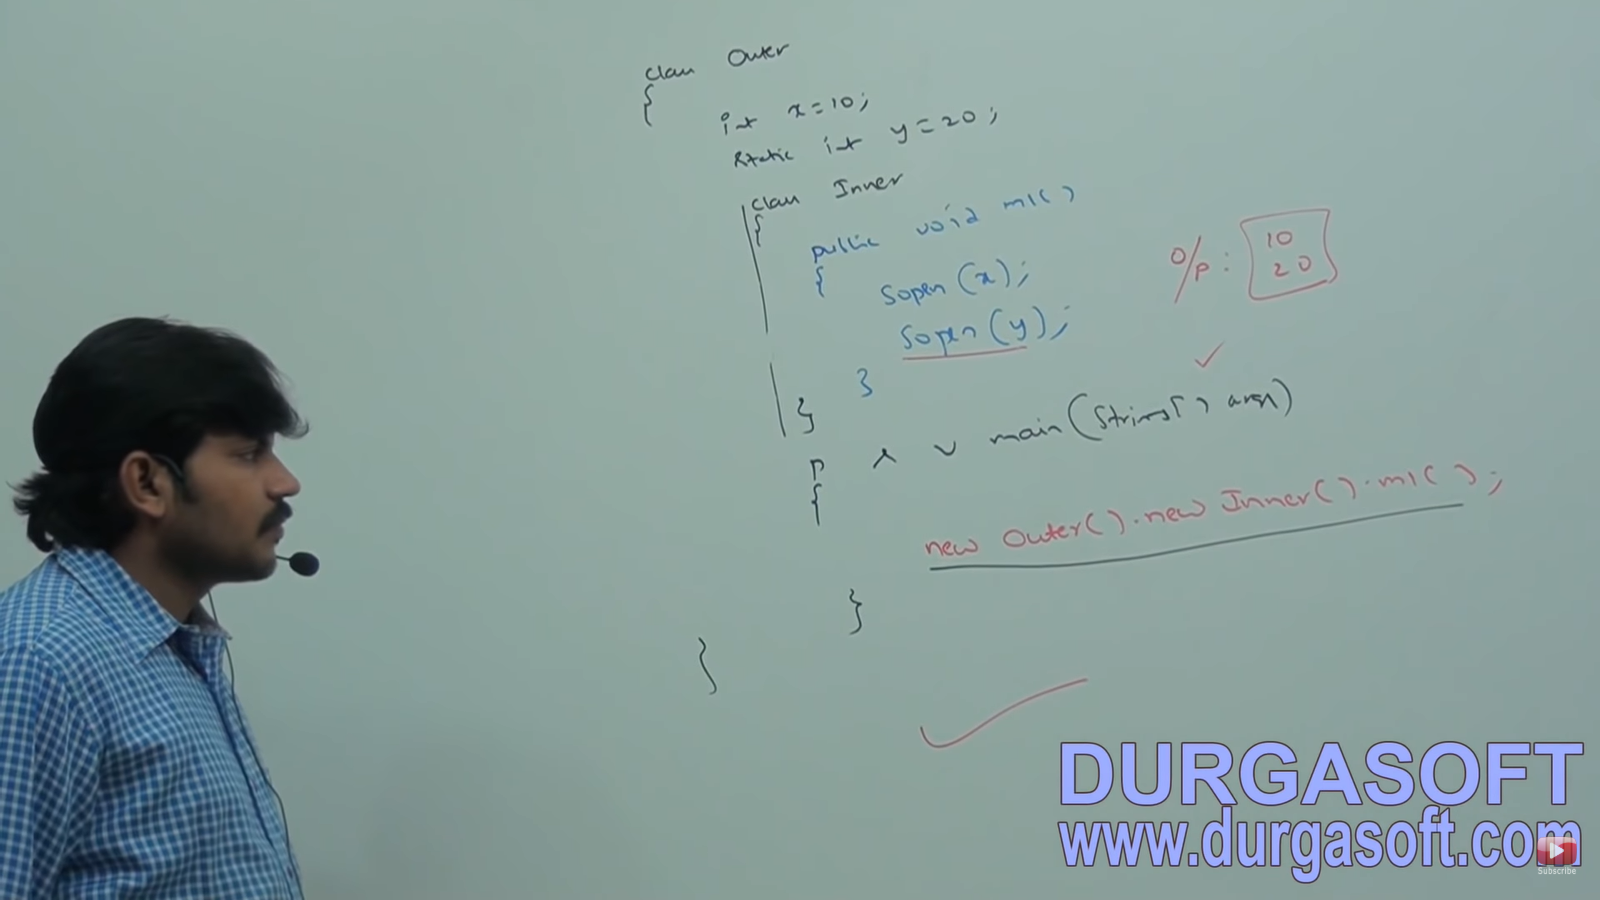 class Outer
{
int x=10;
static int y=20;
class Inner
{
public void m1()
{
Sopln(x);
Sopln(y);
}
}
O/P: 10
20
p s v main(String[] args)
{
new Outer().new Inner().m1();
}
}
DURGASOFT
www.durgasoft.com
Subscribe